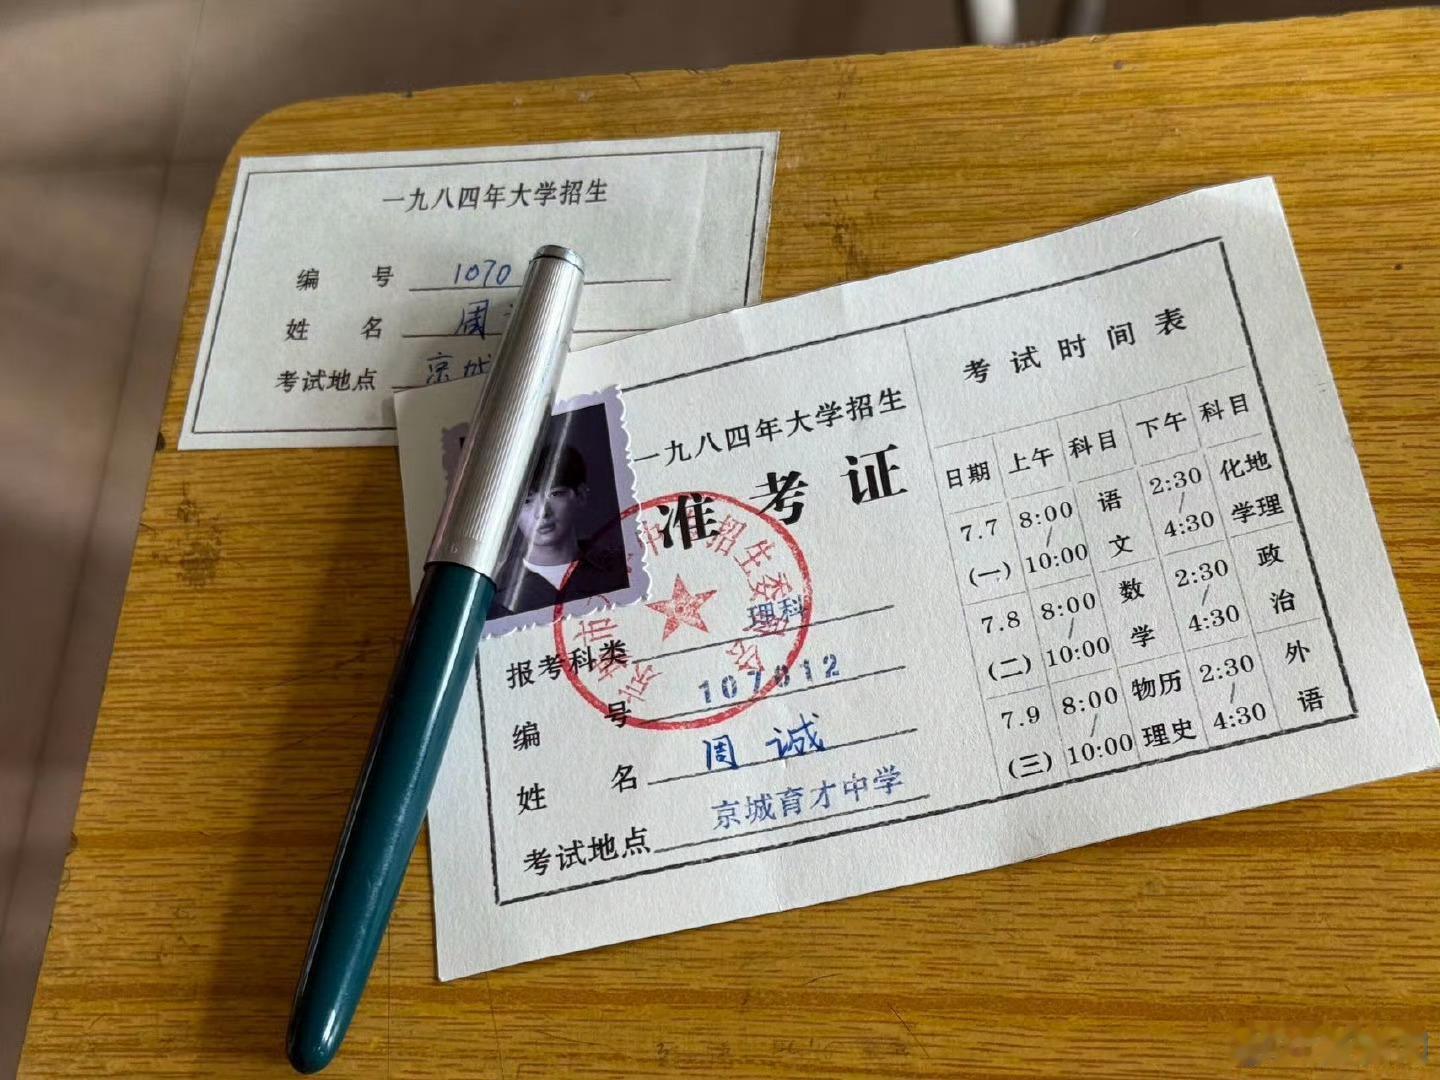 一九八四年大学招生
编 号 1070
姓 名 周
考试地点 京城
一九八四年大学招生
准考证
报考科类 理科
编 号 107812
姓 名 周诚
考试地点 京城育才中学
招生委
考试时间表
日期 上午 科目 下午 科目
7.7 (一) 8:00/10:00 语文 2:30/4:30 化学 地理
7.8 (二) 8:00/10:00 数学 2:30/4:30 政治
7.9 (三) 8:00/10:00 物理 历史 2:30/4:30 外语